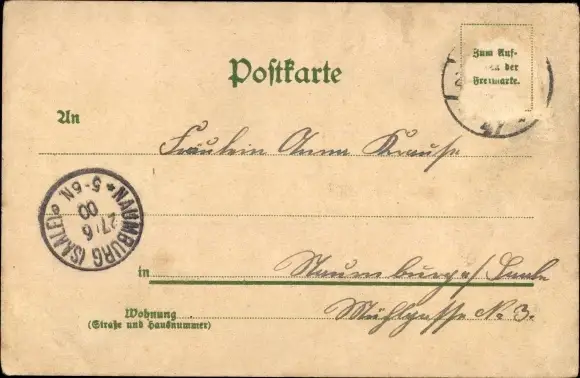 Zum Auf-
der
Freimarke.
Postkarte
An
Fräulein Anna Krause
NAUMBURG (SAALE)
27.6
00
5-6N
in Naumburg a/ Saale
Wohnung Mühlgasse No 3.
(Straße und Hausnummer)